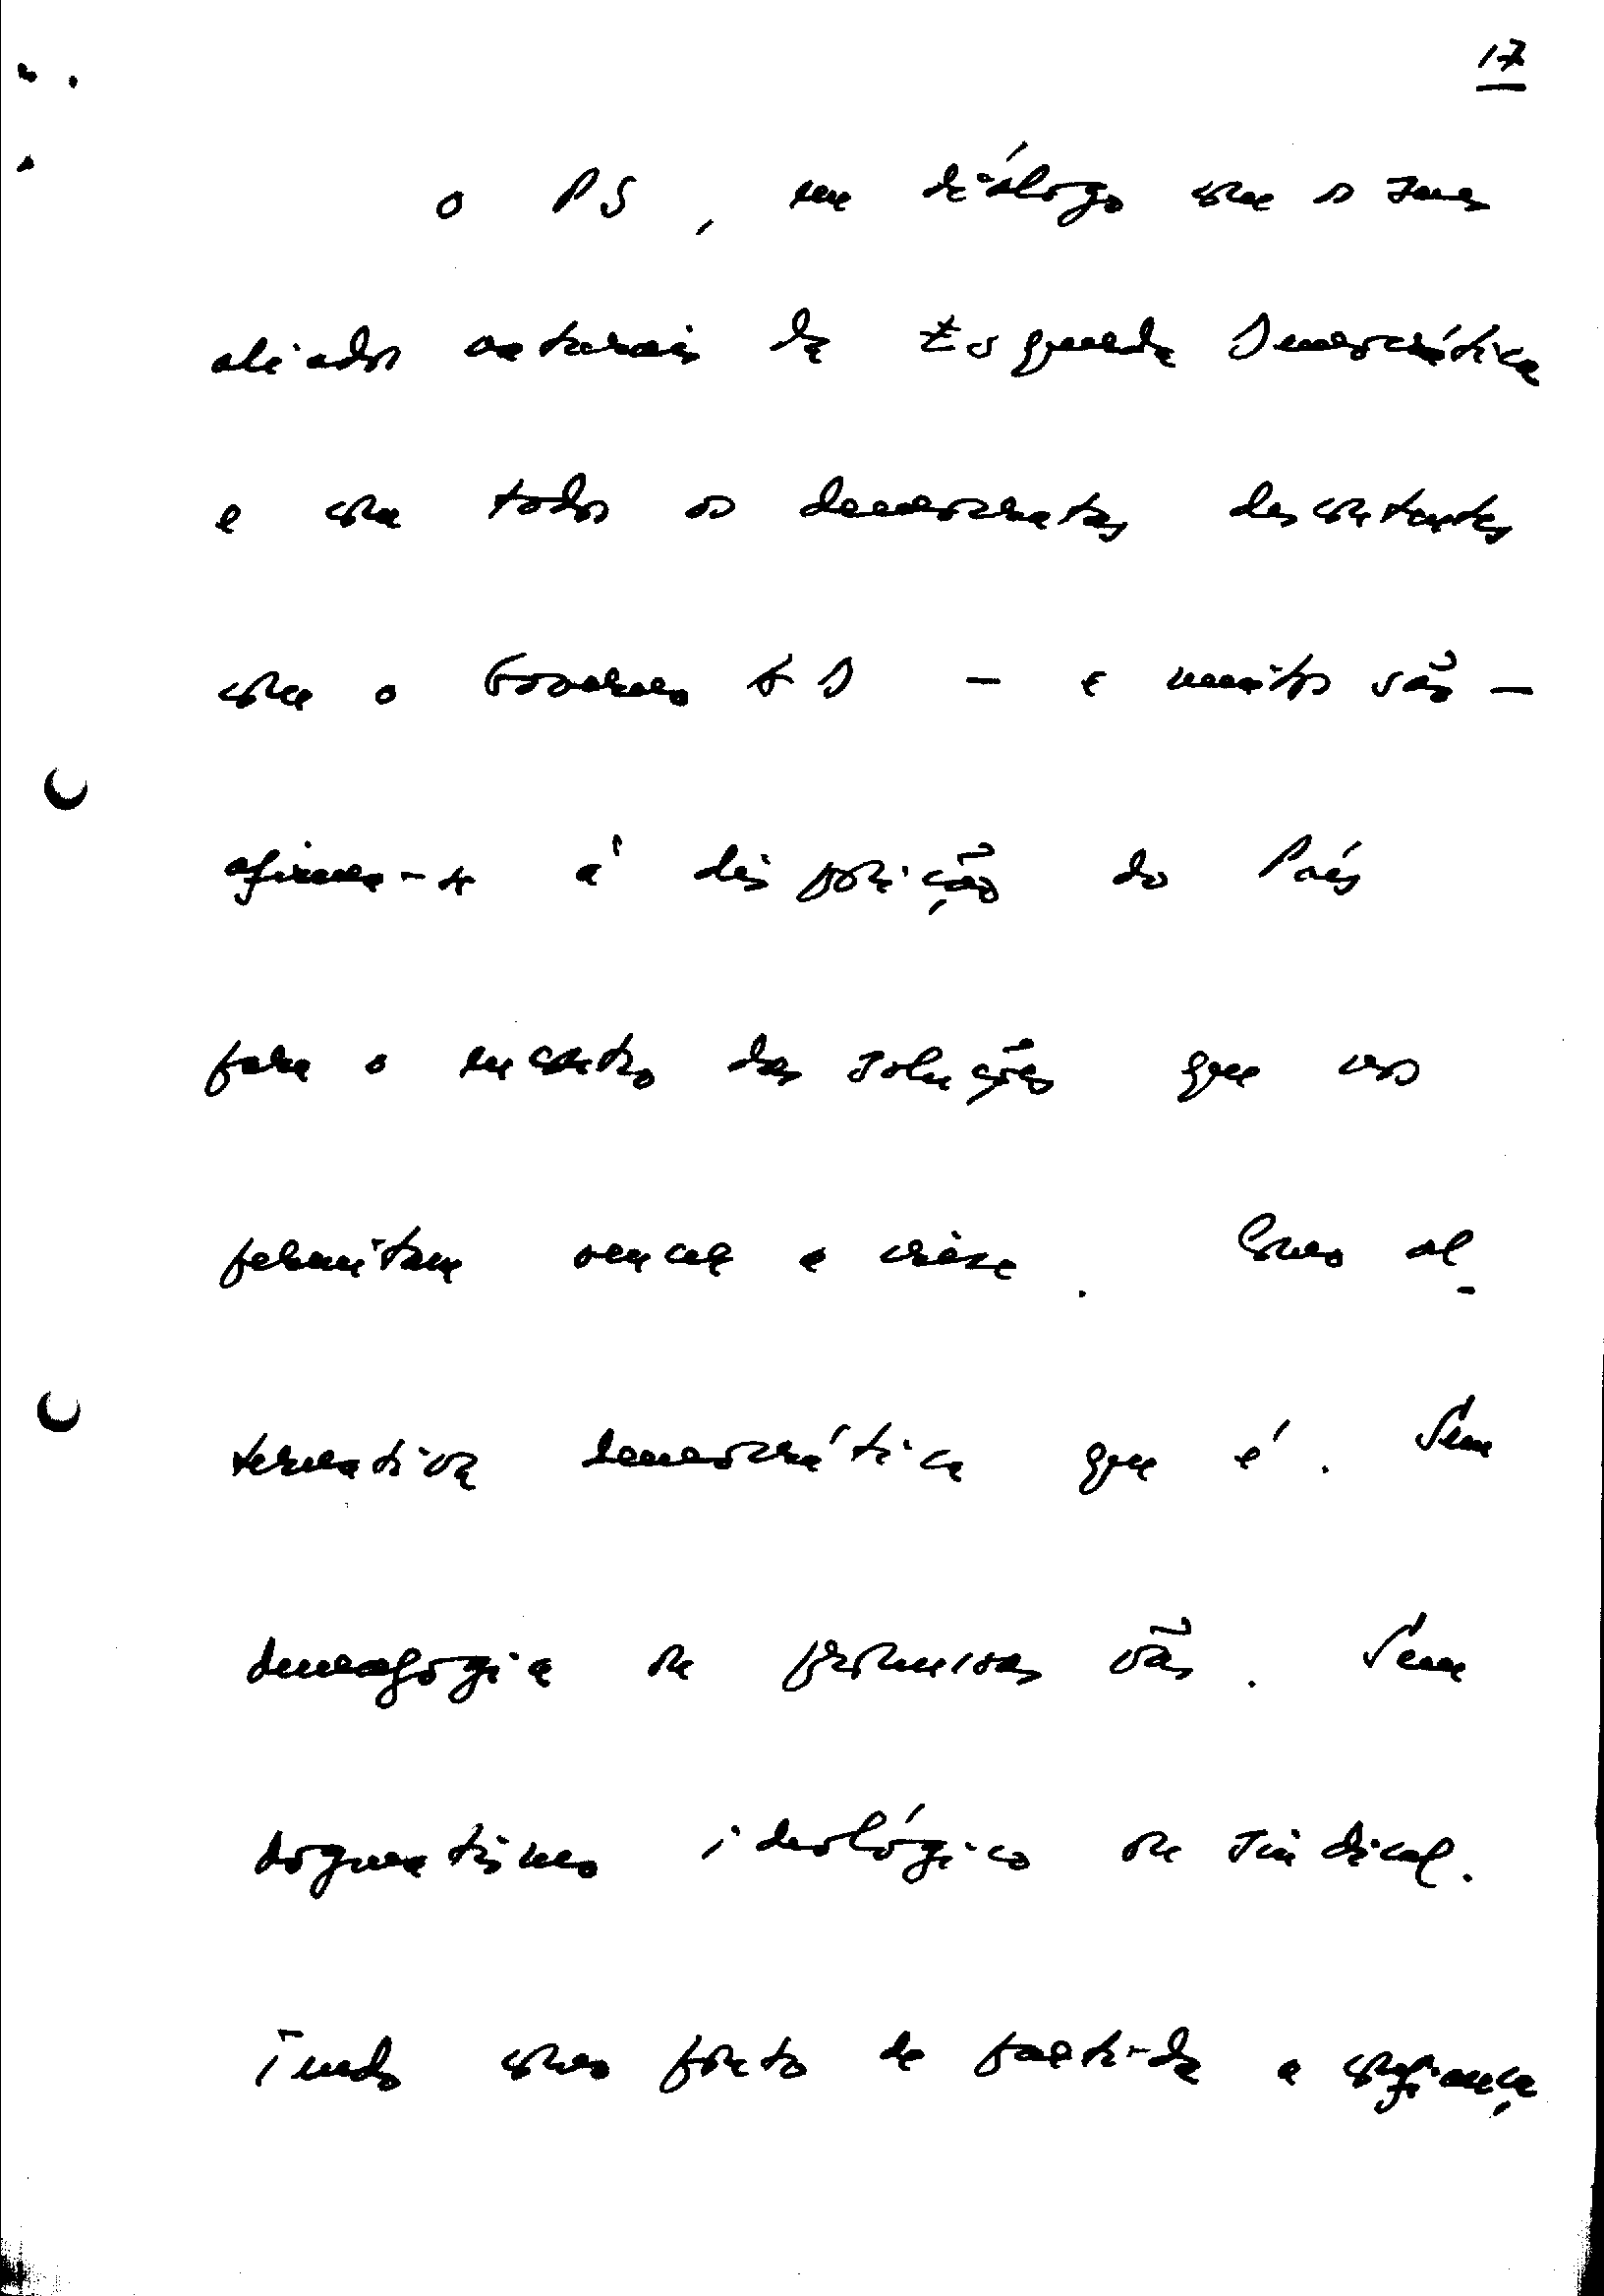 17
O PS, em diálogo com os seus
aliados naturais da Esquerda Democrática
e com todos os democratas descontentes
com o Governo AD — e muitos são —
afirma-se à disposição do País
para o encontro das soluções que nos
permitam vencer a crise. Como al-
ternativa democrática que é. Sem
demagogia ou promessas vãs. Sem
dogmatismo ideológico ou sindical.
Tendo como ponto de partida a confiança